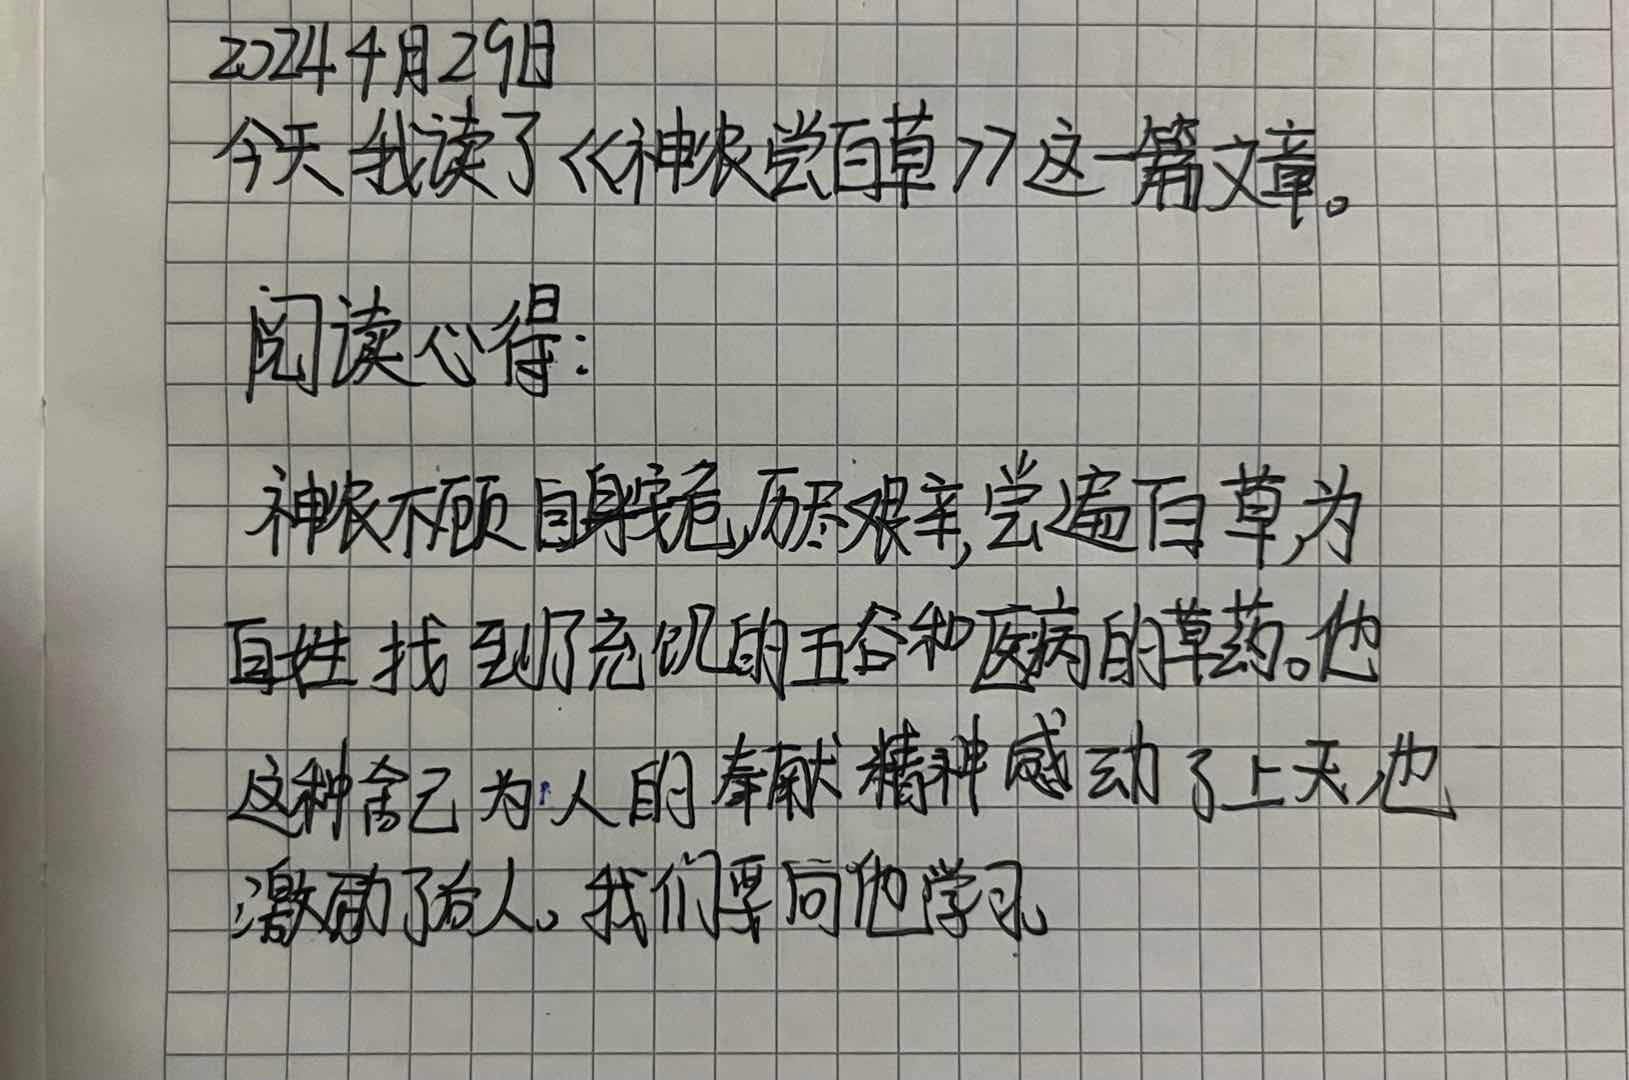 2024 4月29日
今天我读了《神农尝百草》这一篇文章。
阅读心得:
神农不顾自身安危,历尽艰辛,尝遍百草,为
百姓找到了充饥的五谷和医病的草药。他
这种舍己为人的奉献精神感动了上天,也
激励了后人。我们要向他学习